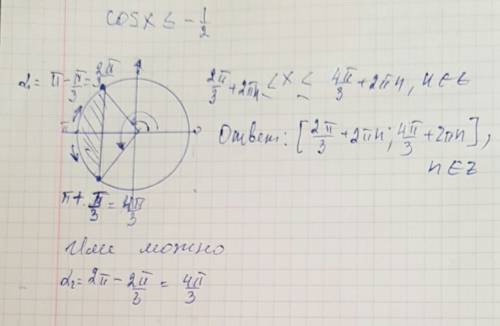 cos x ≤ -1/2
α₁ = π - π/3 = 2π/3
2π/3 + 2πn ≤ x ≤ 4π/3 + 2πn, n ∈ Z
π
Ответ: [2π/3 + 2πn; 4π/3 + 2πn],
n ∈ Z
π + π/3 = 4π/3
Или можно
α₂ = 2π - 2π/3 = 4π/3